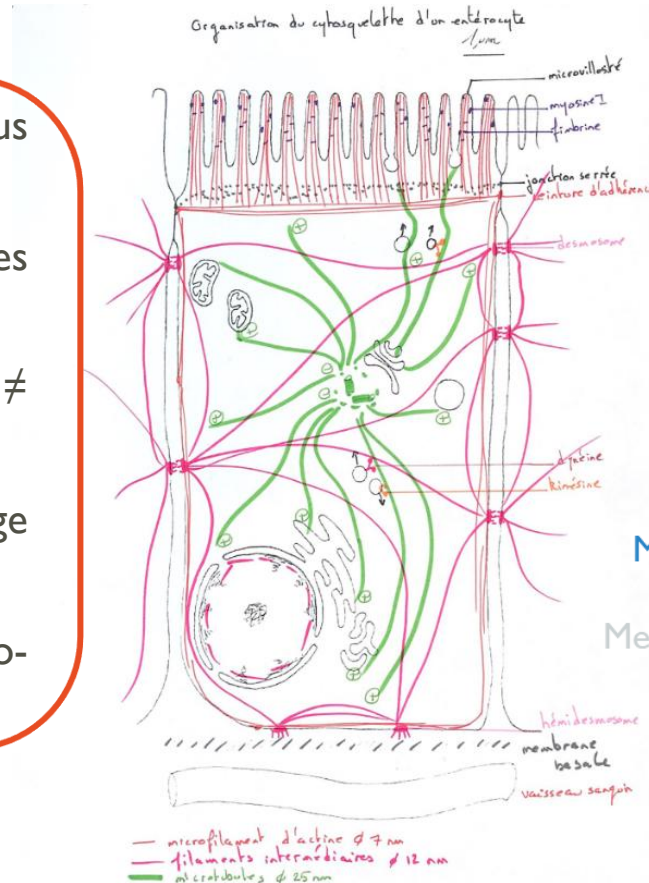 Organisation du cytosquelette d'un entérocyte
1 µm
us
es
≠
ge
o-
microvillosité
myosine I
fimbrine
jonction serrée
ceinture d'adhérence
desmosome
dynéine
kinésine
M
Me
hémidesmosome
membrane
basale
vaisseau sanguin
microfilament d'actine ∅ 7 nm
filaments intermédiaires ∅ 12 nm
microtubules ∅ 25 nm